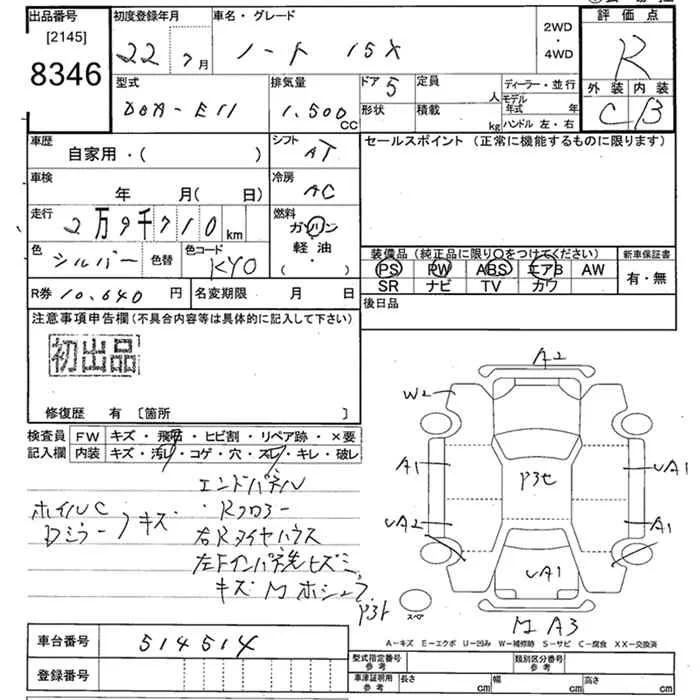 出品番号
[2145]
8346
初度登録年月
22 7月
車名・グレード
ノート 15X
2WD
・
4WD
評価点
R
外装 内装
C B
型式
DBA-E11
排気量
1,500
CC
ドア 5
定員
人
形状
積載
kg
ディーラー・並行
モデル年式 年
ハンドル 左・右
車歴
自家用・( )
シフト
AT
車検
年 月( 日)
冷房
AC
走行
2万9千710km
燃料
ガソリン
軽油
( ・ )
色
シルバー
色替
色コード
KY0
R券 10,640 円
名変期限 月 日
セールスポイント (正常に機能するものに限ります)
装備品 (純正品に限り○をつけてください)
PS PW ABS エアB AW
SR ナビ TV カワ
新車保証書
有・無
後日品
注意事項申告欄(不具合内容等は具体的に記入して下さい)
初出品
修復歴 有 [箇所 ]
検査員
記入欄
FW キズ・飛石・ヒビ割・リペア跡・×要
内装 キズ・汚レ・コゲ・穴・スレ・キレ・破レ
エンドパネル
ホイルC
Dミラー
キズ
Rフロアー
右Rタイヤハウス
キズ M
A2
W2
A1
UA1
UA2
A1
UA1
M A3
スペア
A-キズ E-エクボ U-凹み W-補修跡 S-サビ C-腐食 XX-交換済
車台番号
514514
登録番号
型式指定番号
参考
類別区分番号
参考
車庫証明用
参考
長さ cm
幅 cm
高さ cm